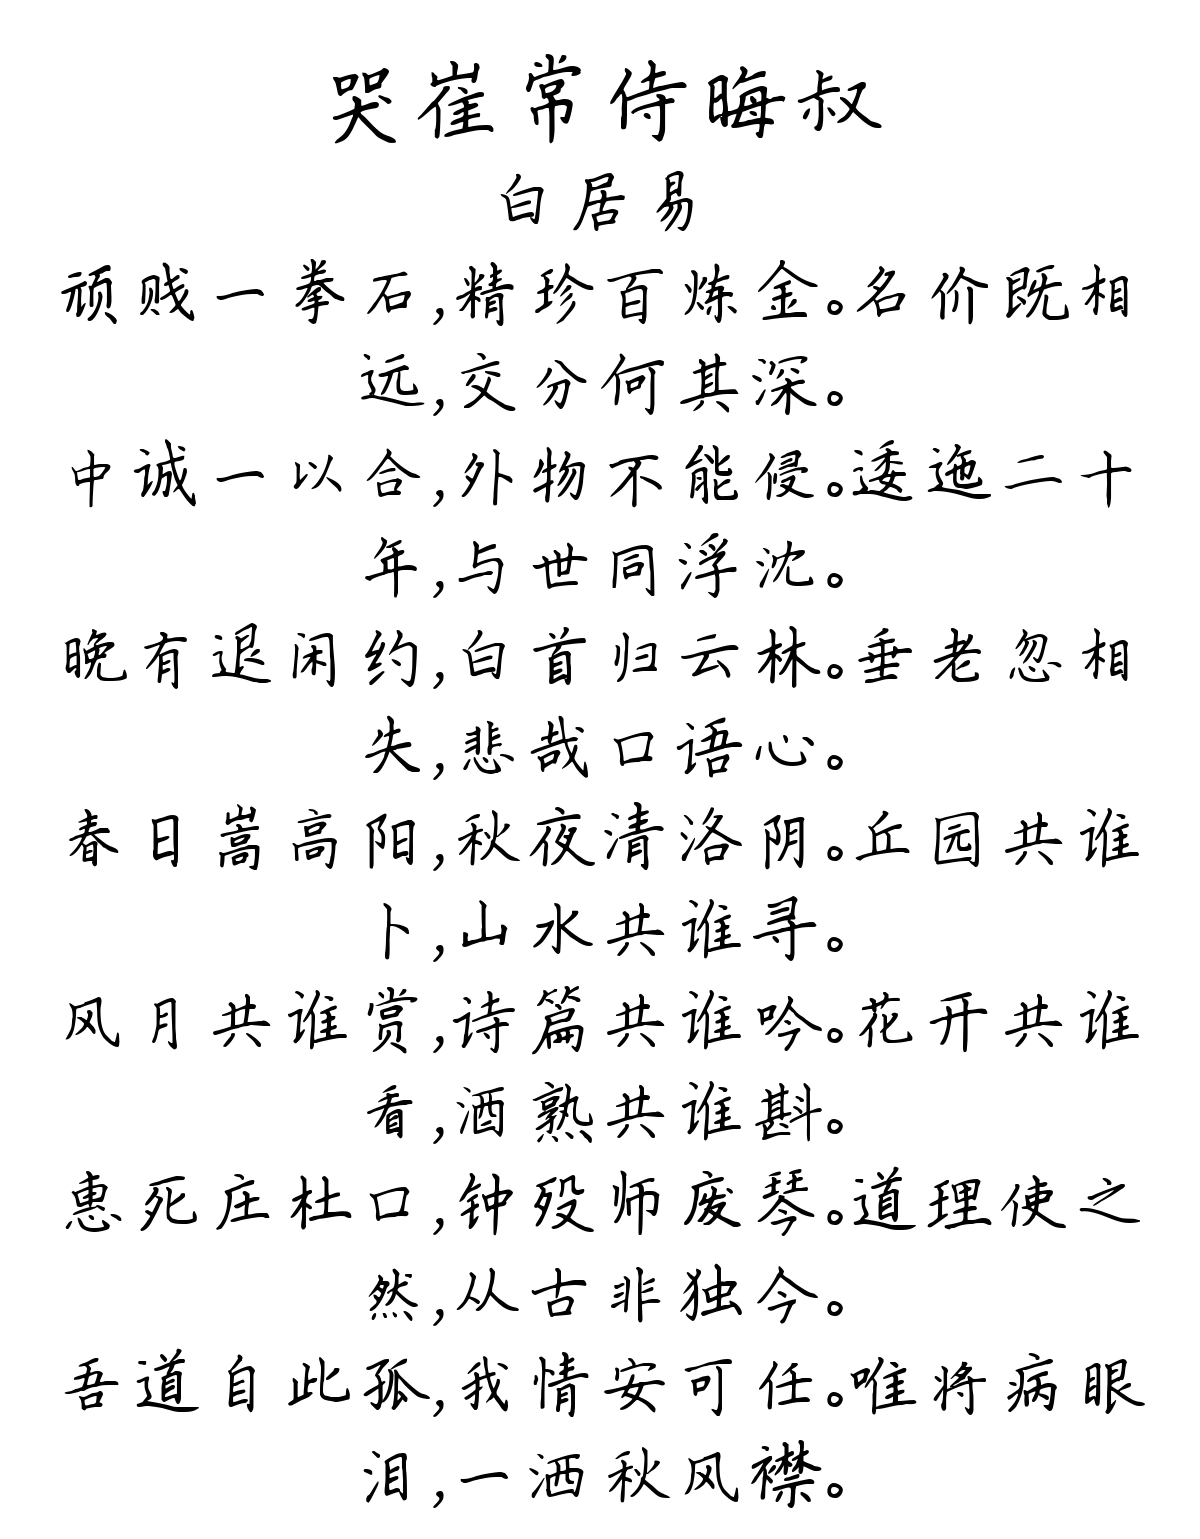 哭崔常侍晦叔
白居易
顽贱一拳石,精珍百炼金。名价既相
远,交分何其深。
中诚一以合,外物不能侵。逶迤二十
年,与世同浮沈。
晚有退闲约,白首归云林。垂老忽相
失,悲哉口语心。
春日嵩高阳,秋夜清洛阴。丘园共谁
卜,山水共谁寻。
风月共谁赏,诗篇共谁吟。花开共谁
看,酒熟共谁斟。
惠死庄杜口,钟殁师废琴。道理使之
然,从古非独今。
吾道自此孤,我情安可任。唯将病眼
泪,一洒秋风襟。